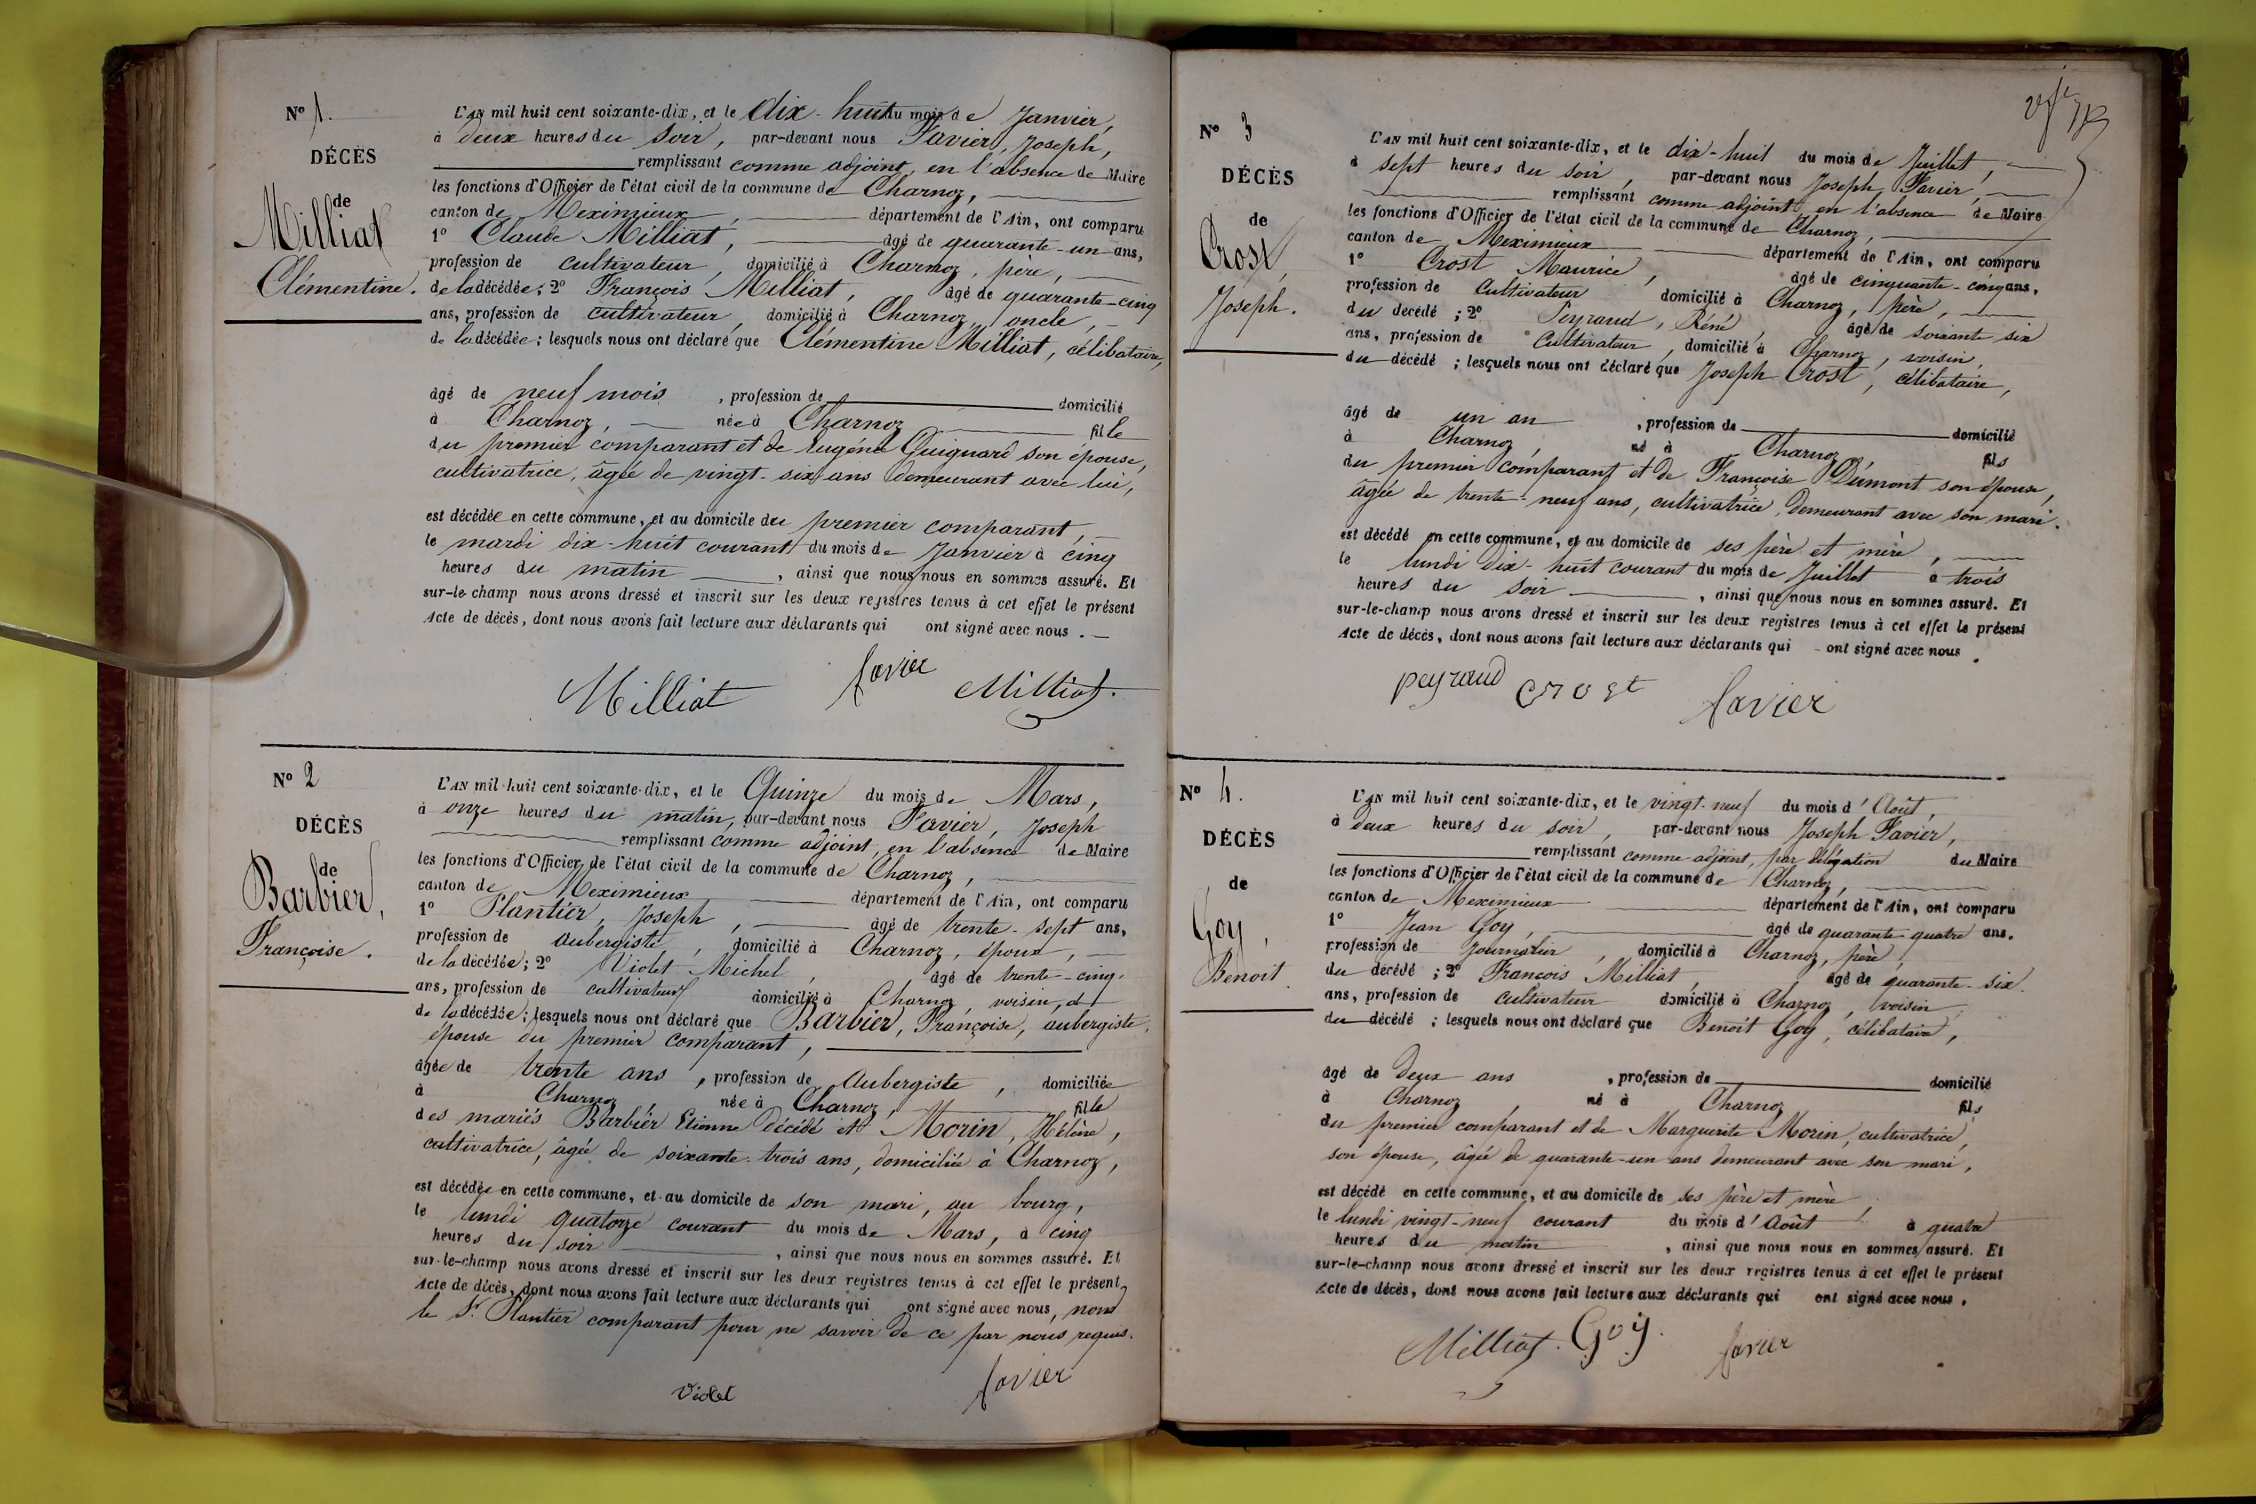 Nº 1.
DÉCÈS
de
Milliat
Clémentine.
L'AN mil huit cent soixante-dix, et le dix-huit du mois de Janvier,
à deux heures du soir, par-devant nous Favier, Joseph,
remplissant comme adjoint, en l'absence de Maire
les fonctions d'Officier de l'état civil de la commune de Charnoz,
canton de Meximieux, département de l'Ain, ont comparu
1º Claude Milliat, âgé de quarante-un ans,
profession de cultivateur, domicilié à Charnoz, père,
de la décédée; 2º François Milliat, âgé de quarante-cinq
ans, profession de cultivateur, domicilié à Charnoz, oncle,
de la décédée; lesquels nous ont déclaré que Clémentine Milliat, célibataire,
âgé de neuf mois, profession de domicilié
à Charnoz, née à Charnoz fille
du premier comparant et de Eugénie Guignard son épouse,
cultivatrice, âgée de vingt-six ans demeurant avec lui,
est décédée en cette commune, et au domicile du premier comparant,
le mardi dix-huit courant du mois de Janvier à cinq
heures du matin, ainsi que nous nous en sommes assuré. Et
sur-le-champ nous avons dressé et inscrit sur les deux registres tenus à cet effet le présent
Acte de décès, dont nous avons fait lecture aux déclarants qui ont signé avec nous.
Milliat favier Milliat.
Nº 2
DÉCÈS
de
Barbier,
Françoise.
L'AN mil huit cent soixante-dix, et le Quinze du mois de Mars,
à onze heures du matin, par-devant nous Favier, Joseph
remplissant comme adjoint, en l'absence de Maire
les fonctions d'Officier de l'état civil de la commune de Charnoz,
canton de Meximieux département de l'Ain, ont comparu
1º Plantier, Joseph, âgé de trente-sept ans,
profession de aubergiste, domicilié à Charnoz, époux,
de la décédée; 2º Violet Michel, âgé de trente-cinq
ans, profession de cultivateur domicilié à Charnoz, voisin,
de la décédée; lesquels nous ont déclaré que Barbier, Françoise, aubergiste,
épouse du premier comparant,
âgée de trente ans, profession de Aubergiste, domiciliée
à Charnoz, née à Charnoz, fille
des mariés Barbier Etienne décédé et Morin, Hélène,
cultivatrice, âgée de soixante-trois ans, domiciliée à Charnoz,
est décédée en cette commune, et au domicile de son mari, au bourg,
le lundi quatorze courant du mois de Mars, à cinq
heures du soir, ainsi que nous nous en sommes assuré. Et
sur-le-champ nous avons dressé et inscrit sur les deux registres tenus à cet effet le présent
Acte de décès, dont nous avons fait lecture aux déclarants qui ont signé avec nous, non
le Sr Plantier comparant pour ne savoir de ce par nous requis.
Violet favier
Nº 3
DÉCÈS
de
Crost,
Joseph.
L'AN mil huit cent soixante-dix, et le dix-huit du mois de Juillet,
à sept heures du soir, par-devant nous Joseph Favier,
remplissant comme adjoint en l'absence de Maire
les fonctions d'Officier de l'état civil de la commune de Charnoz,
canton de Meximieux département de l'Ain, ont comparu
1º Crost Maurice, âgé de cinquante-cinq ans,
profession de Cultivateur domicilié à Charnoz, père,
du décédé; 2º Peyraud, Réné, âgé de soixante six
ans, profession de Cultivateur, domicilié à Charnoz, voisin,
du décédé; lesquels nous ont déclaré que Joseph Crost, célibataire,
âgé de un an, profession de domicilié
à Charnoz né à Charnoz, fils
du premier comparant et de Françoise Dumont son épouse,
âgée de trente-neuf ans, cultivatrice, demeurant avec son mari.
est décédé en cette commune, et au domicile de ses père et mère,
le lundi dix-huit courant du mois de Juillet à trois
heures du soir, ainsi que nous nous en sommes assuré. Et
sur-le-champ nous avons dressé et inscrit sur les deux registres tenus à cet effet le présent
Acte de décès, dont nous avons fait lecture aux déclarants qui ont signé avec nous.
peyraud crost favier
Nº 4.
DÉCÈS
de
Goy,
Benoit
L'AN mil huit cent soixante-dix, et le vingt-neuf du mois d'Août,
à deux heures du soir, par-devant nous Joseph Favier,
remplissant comme adjoint, par délégation du Maire
les fonctions d'Officier de l'état civil de la commune de Charnoz,
canton de Meximieux département de l'Ain, ont comparu
1º Jean Goy, âgé de quarante quatre ans.
profession de Journalier, domicilié à Charnoz, père
du décédé; 2º François Milliat, âgé de quarante-six
ans, profession de cultivateur domicilié à Charnoz, voisin
du décédé; lesquels nous ont déclaré que Benoît Goy, célibataire,
âgé de Deux ans, profession de domicilié
à Charnoz, né à Charnoz fils
du premier comparant et de Marguerite Morin, cultivatrice,
son épouse, âgée de quarante-un ans demeurant avec son mari,
est décédé en cette commune, et au domicile de ses père et mère
le lundi vingt-neuf courant du mois d'Août à quatre
heures du matin, ainsi que nous nous en sommes assuré. Et
sur-le-champ nous avons dressé et inscrit sur les deux registres tenus à cet effet le présent
Acte de décès, dont nous avons fait lecture aux déclarants qui ont signé avec nous.
Milliat. Goy. favier